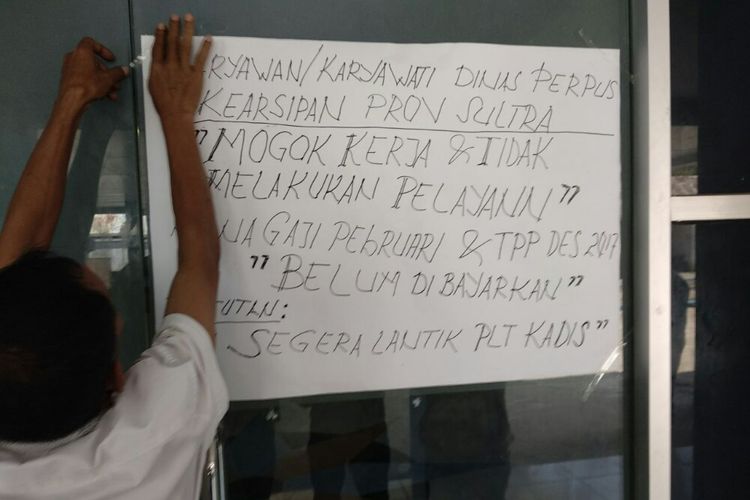 RYAWAN/KARYAWATI DINAS PERPUS
KEARSIPAN PROV SULTRA
"MOGOK KERJA & TIDAK
MELAKUKAN PELAYANN"
GAJI PEBRUARI & TPP DES 2017
"BELUM DIBAYARKAN"
SEGERA LANTIK PLT KADIS"